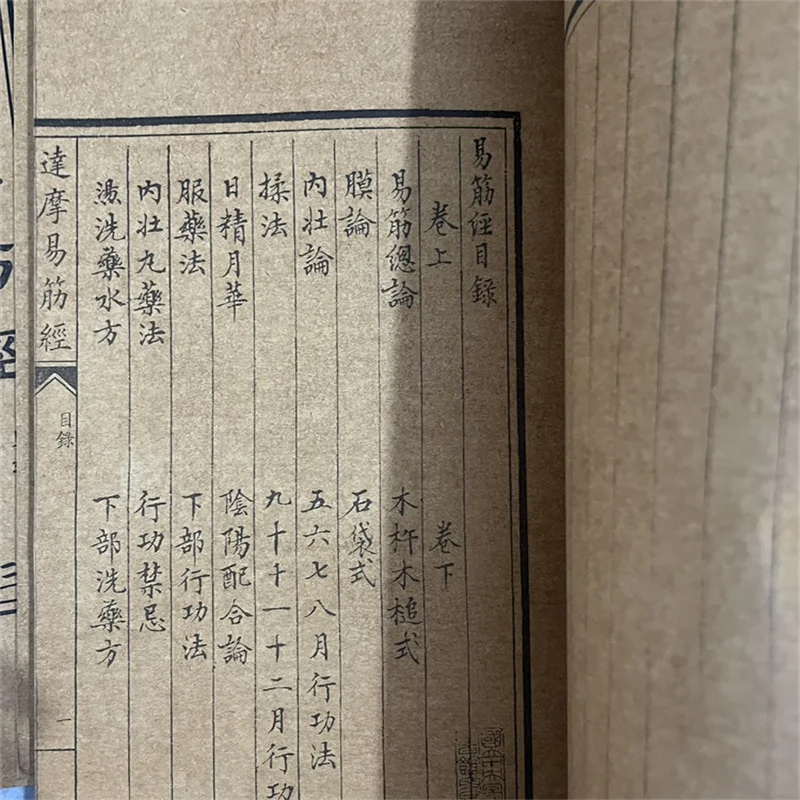 易筋經目錄
卷上
卷下
易筋總論
木杵木槌式
膜論
石袋式
內壯論
五六七八月行功法
揉法
九十十一十二月行功
日精月華
陰陽配合論
服藥法
下部行功法
內壯丸藥法
行功禁忌
湯洗藥水方
下部洗藥方
達摩易筋經
目錄
一